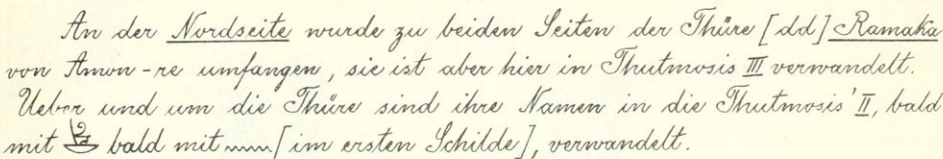 An der Nordseite wurde zu beiden Seiten der Thüre [dd] Ramaka
von Amon-re umfangen, sie ist aber hier in Thutmosis III verwandelt.
Ueber und um die Thüre sind ihre Namen in die Thutmosis' II, bald
mit bald mit 𓈖 [im ersten Schilde], verwandelt.